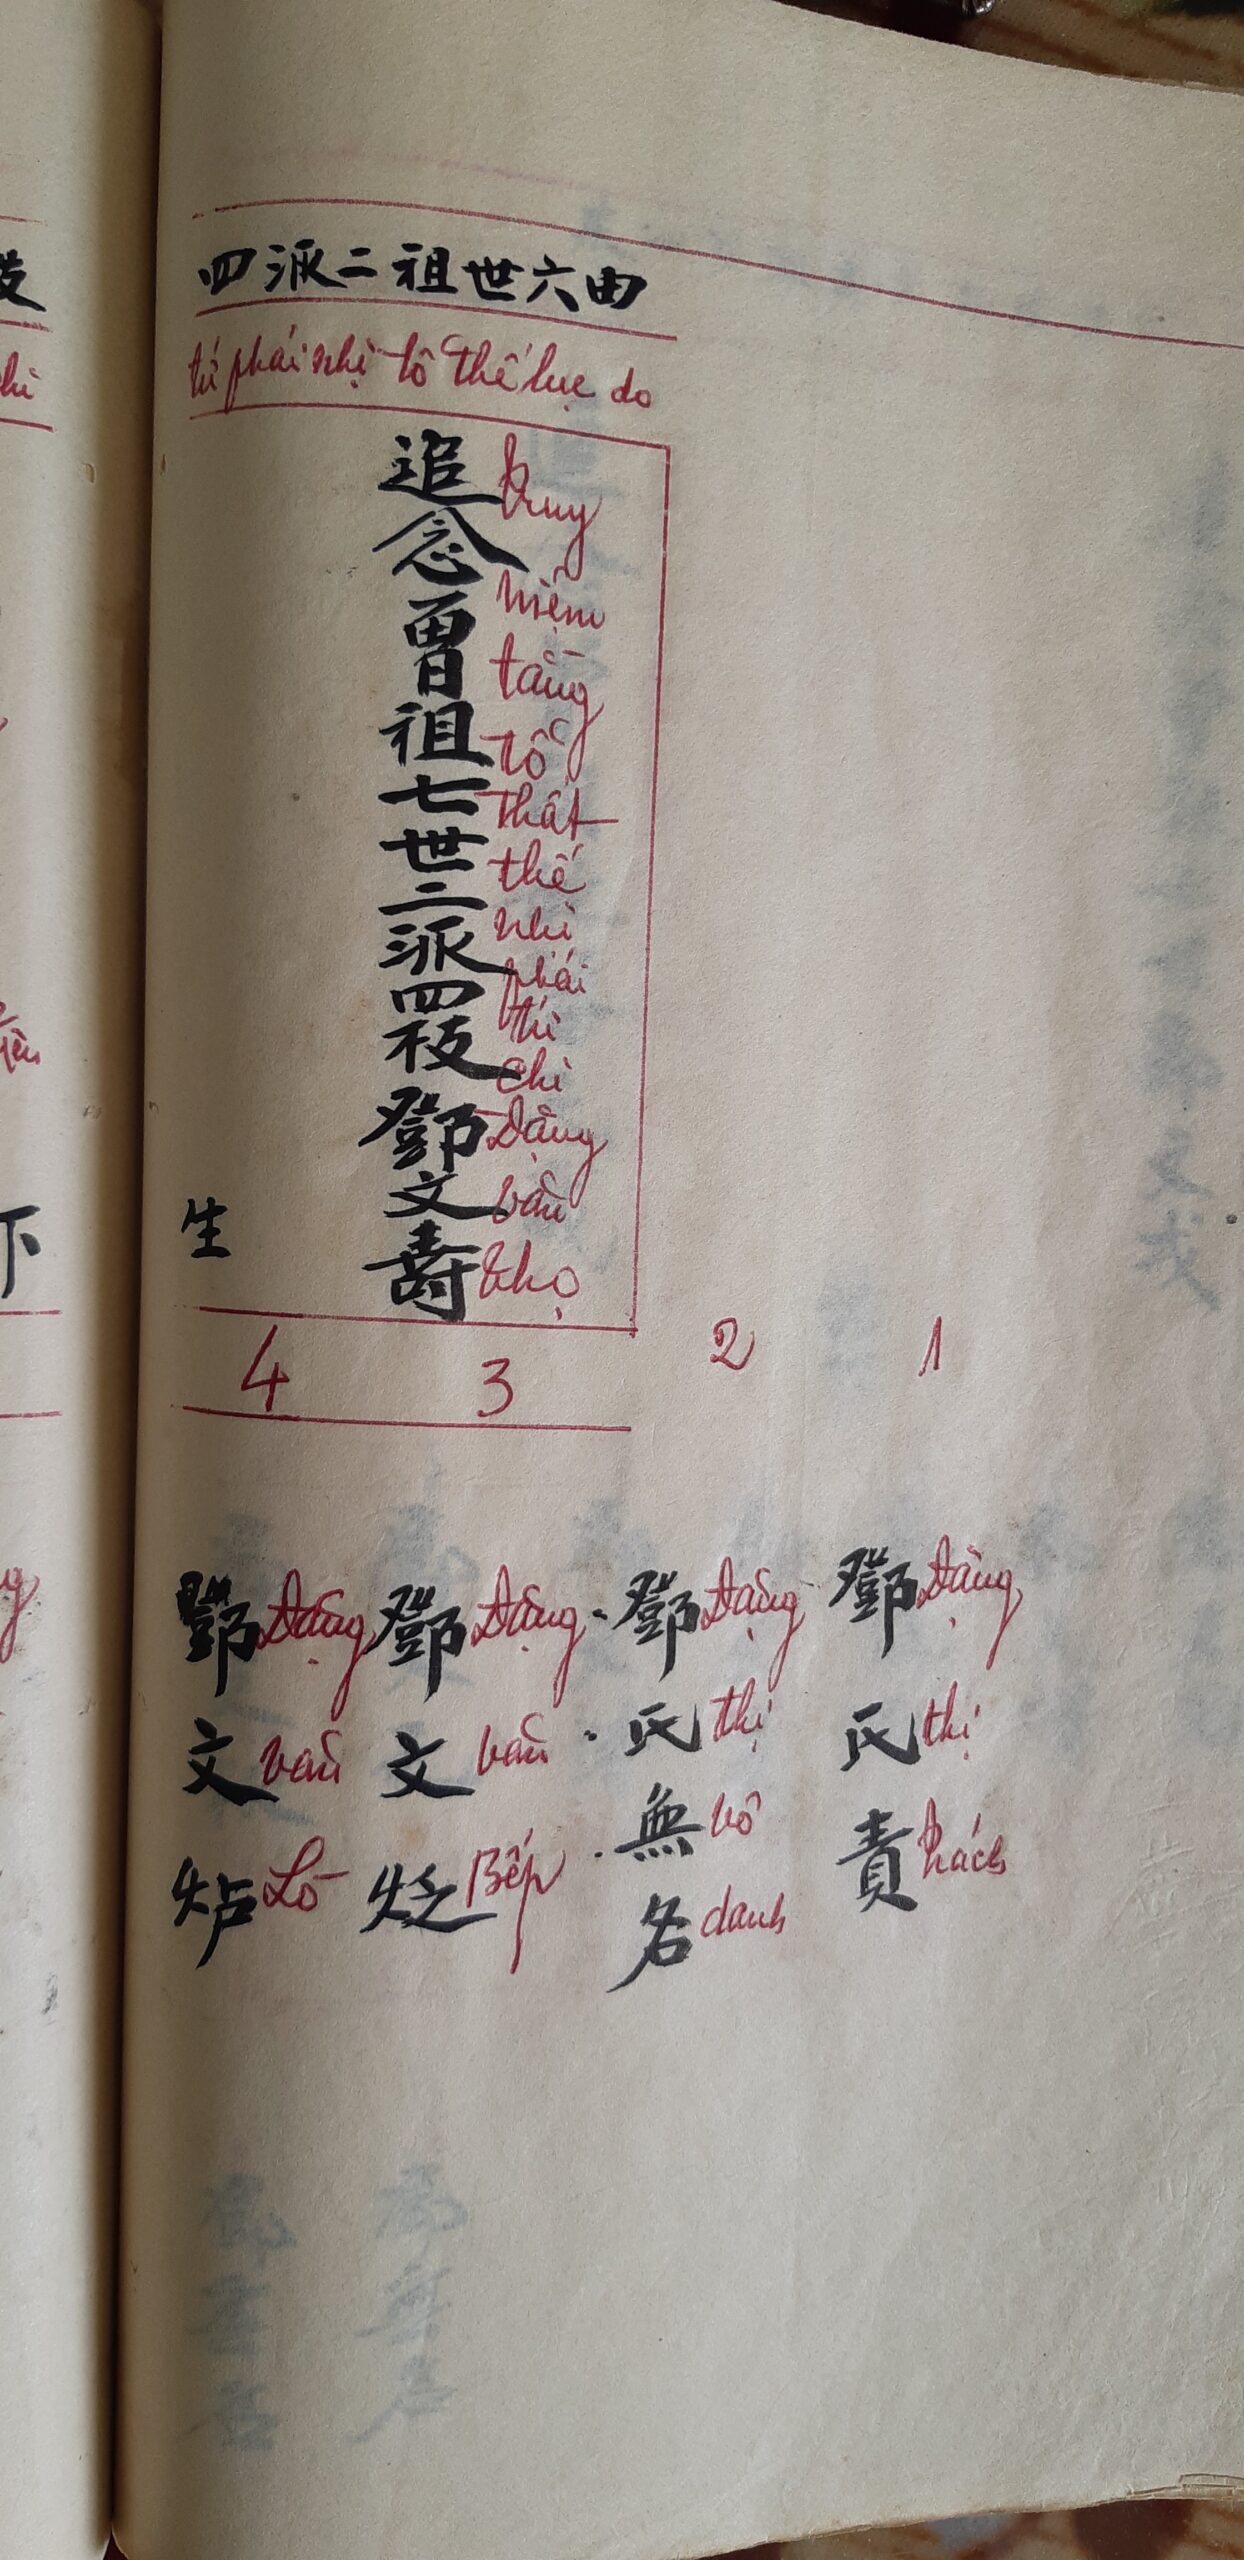 四派二祖世六由
tứ phái nhị tổ thế lục do
追念曾祖七世二派四枝鄧文壽
truy niệm tằng tổ thất thế nhì phái tứ chi Đặng văn thọ
生
4 3 2 1
鄧氏責
Đặng thị trách
鄧氏無名
Đặng thị vô danh
鄧文炆
Đặng văn Bếp
鄧文炉
Đặng văn Lò
下